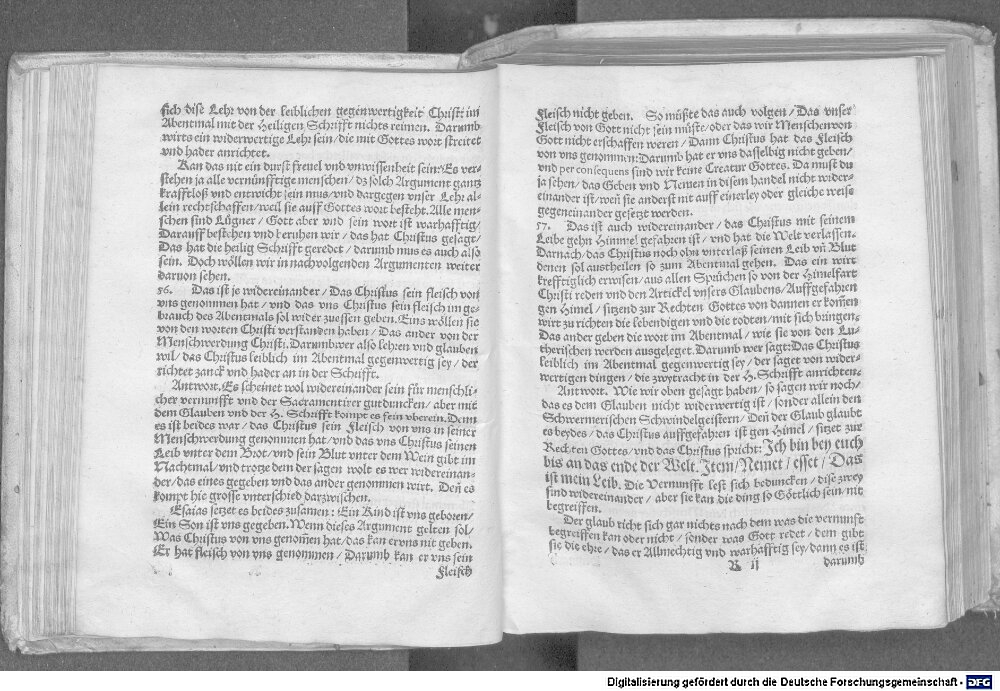 sich dise Lehr von der leiblichen gegenwertigkeit Christi im
Abentmal mit der Heiligen Schrifft nichts reimen. Darumb
wirts ein widerwertige Lehr sein / die mit Gottes wort streitet
vnd hader anrichtet.
Kan das nit ein durst freuel vnd vnwissenheit sein: Es ver-
stehen ja alle vernünfftige menschen / dz solch Argument gantz
krafftloß vnd entwicht sein mus / vnd dargegen vnser Lehr al-
lein rechtschaffen / weil sie auff Gottes wort besteht. Alle men-
schen sind Lügner / Gott aber vnd sein wort ist warhafftig /
Darauff bestehen vnd beruhen wir / das hat Christus gesagt /
Das hat die heilig Schrifft geredet / darumb mus es auch also
sein. Doch wöllen wir in nachuolgenden Argumenten weiter
daruon sehen.
56. Das ist je widereinander / Das Christus sein fleisch von
vns genommen hat / vnd das vns Christus sein fleisch im ge-
brauch des Abentmals sol wider zuessen geben. Eins wöllen sie
von den worten Christi verstanden haben / Das ander von der
Menschwerdung Christi. Darumb wer also lehren vnd glauben
wil / das Christus leiblich im Abentmal gegenwertig sey / der
richtet zanck vnd hader an in der Schrifft.
Antwort. Es scheinet wol widereinander sein für menschli-
cher vernunfft vnd der Sacramentirer gutduncken / aber mit
dem Glauben vnd der H. Schrifft kompt es fein vberein. Denn
es ist beides war / das Christus sein Fleisch von vns in seiner
Menschwerdung genommen hat / vnd das vns Christus seinen
Leib vnter dem Brot / vnd sein Blut vnter dem Wein gibt im
Nachtmal / vnd trotze dem der sagen wolt es wer widereinan-
der / das eines gegeben vnd das ander genommen wirt. Deñ es
kompt hie grosse vnterschied darzwischen.
Esaias setzet es beides zusamen: Ein Kind ist vns geboren /
Ein Son ist vns gegeben. Wenn dieses Argument gelten sol /
Was Christus von vns genom̃en hat / das kan er vns nit geben.
Er hat fleisch von vns genommen / Darumb kan er vns sein
Fleisch
Fleisch nicht geben. So müßte das auch volgen / Das vnser
Fleisch von Gott nicht sein müßte / oder das wir Menschen von
Gott nicht erschaffen weren / Dann Christus hat das Fleisch
von vns genommen: Darumb hat er vns dasselbig nicht geben /
vnd per consequens sind wir keine Creatur Gottes. Da must du
ja sehen / das Geben vnd Nemen in disem handel nicht wider-
einander ist / weil sie anderst nit auff einerley oder gleiche weise
gegeneinander gesetzt werden.
57. Das ist auch widereinander / das Christus mit seinem
Leibe gehn Himmel gefahren ist / vnd hat die Welt verlassen.
Darnach / das Christus noch ohn vnterlaß seinen Leib vñ Blut
denen sol austheilen so zum Abentmal gehen. Das ein wirt
krefftiglich erwisen / aus allen Sprüchen so von der Himelfart
Christi reden vnd den Artickel vnsers Glaubens / Auffgefahren
gen Himel / sitzend zur Rechten Gottes von dannen er kom̃en
wirt zu richten die lebendigen vnd die todten / mit sich bringen.
Das ander geben die wort im Abentmal / wie sie von den Lu-
therischen werden ausgeleget. Darumb wer sagt: Das Christus
leiblich im Abentmal gegenwertig sey / der saget von wider-
wertigen dingen / die zwytracht in der H. Schrifft anrichten.
Antwort. Wie wir oben gesagt haben / so sagen wir noch /
das es dem Glauben nicht widerwertig ist / sonder allein den
Schwermerischen Schwindelgeistern / Deñ der Glaub glaubt
es beydes / das Christus auffgefahren ist gen Himel / sitzet zur
Rechten Gottes / vnd das Christus spricht: Ich bin bey euch
bis an das ende der Welt. Item / Nemet / esset / Das
ist mein Leib. Die Vernunfft lest sich beduncken / dise zwey
sind widereinander / aber sie kan die ding so Göttlich sein / nit
begreiffen.
Der glaub richt sich gar nichts nach dem was die vernunft
begreiffen kan oder nicht / sonder was Gott redet / dem gibt
sie die ehre / das er Allmechtig vnd warhafftig sey / dann es ist
R ij darumb
Digitalisierung gefördert durch die Deutsche Forschungsgemeinschaft - DFG